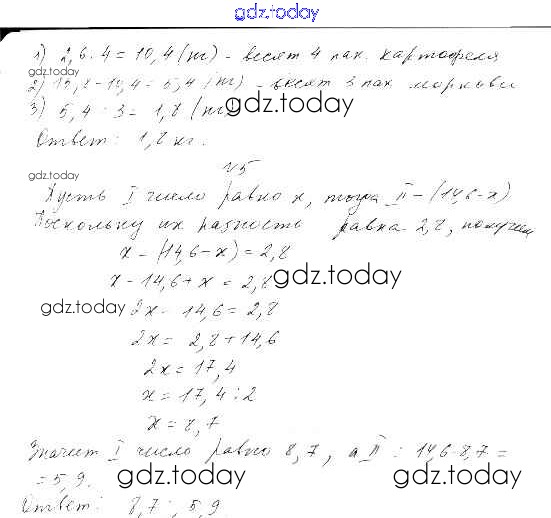 gdz.today
1) 2,6 · 4 = 10,4 (кг) - весят 4 пак. картофеля
gdz.today
2) 15,8 - 10,4 = 5,4 (кг) - весят 3 пак моркови
3) 5,4 : 3 = 1,8 (кг)
gdz.today
Ответ: 1,8 кг.
№5
gdz.today
Пусть I число равно x, тогда II - (14,6-x)
Поскольку их разность равна 2,8, получаем
x - (14,6 - x) = 2,8
x - 14,6 + x = 2,8
gdz.today
gdz.today
2x - 14,6 = 2,8
2x = 2,8 + 14,6
2x = 17,4
x = 17,4 : 2
x = 8,7
Значит I число равно 8,7, а II : 14,6-8,7 =
= 5,9.
gdz.today
gdz.today
Ответ: 8,7 ; 5,9